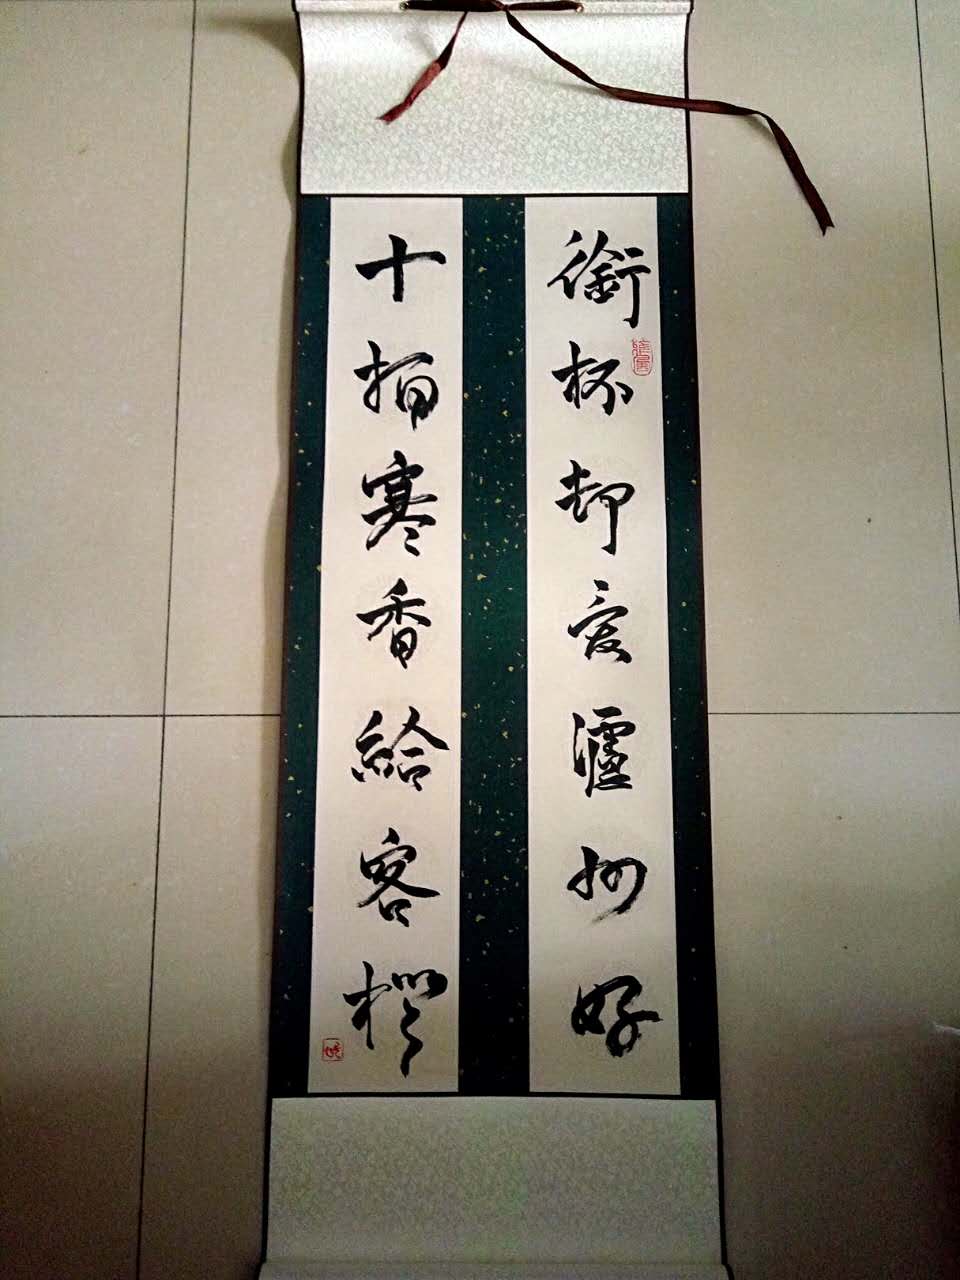 銜杯却爱瀘州好
十指寒香給客橙